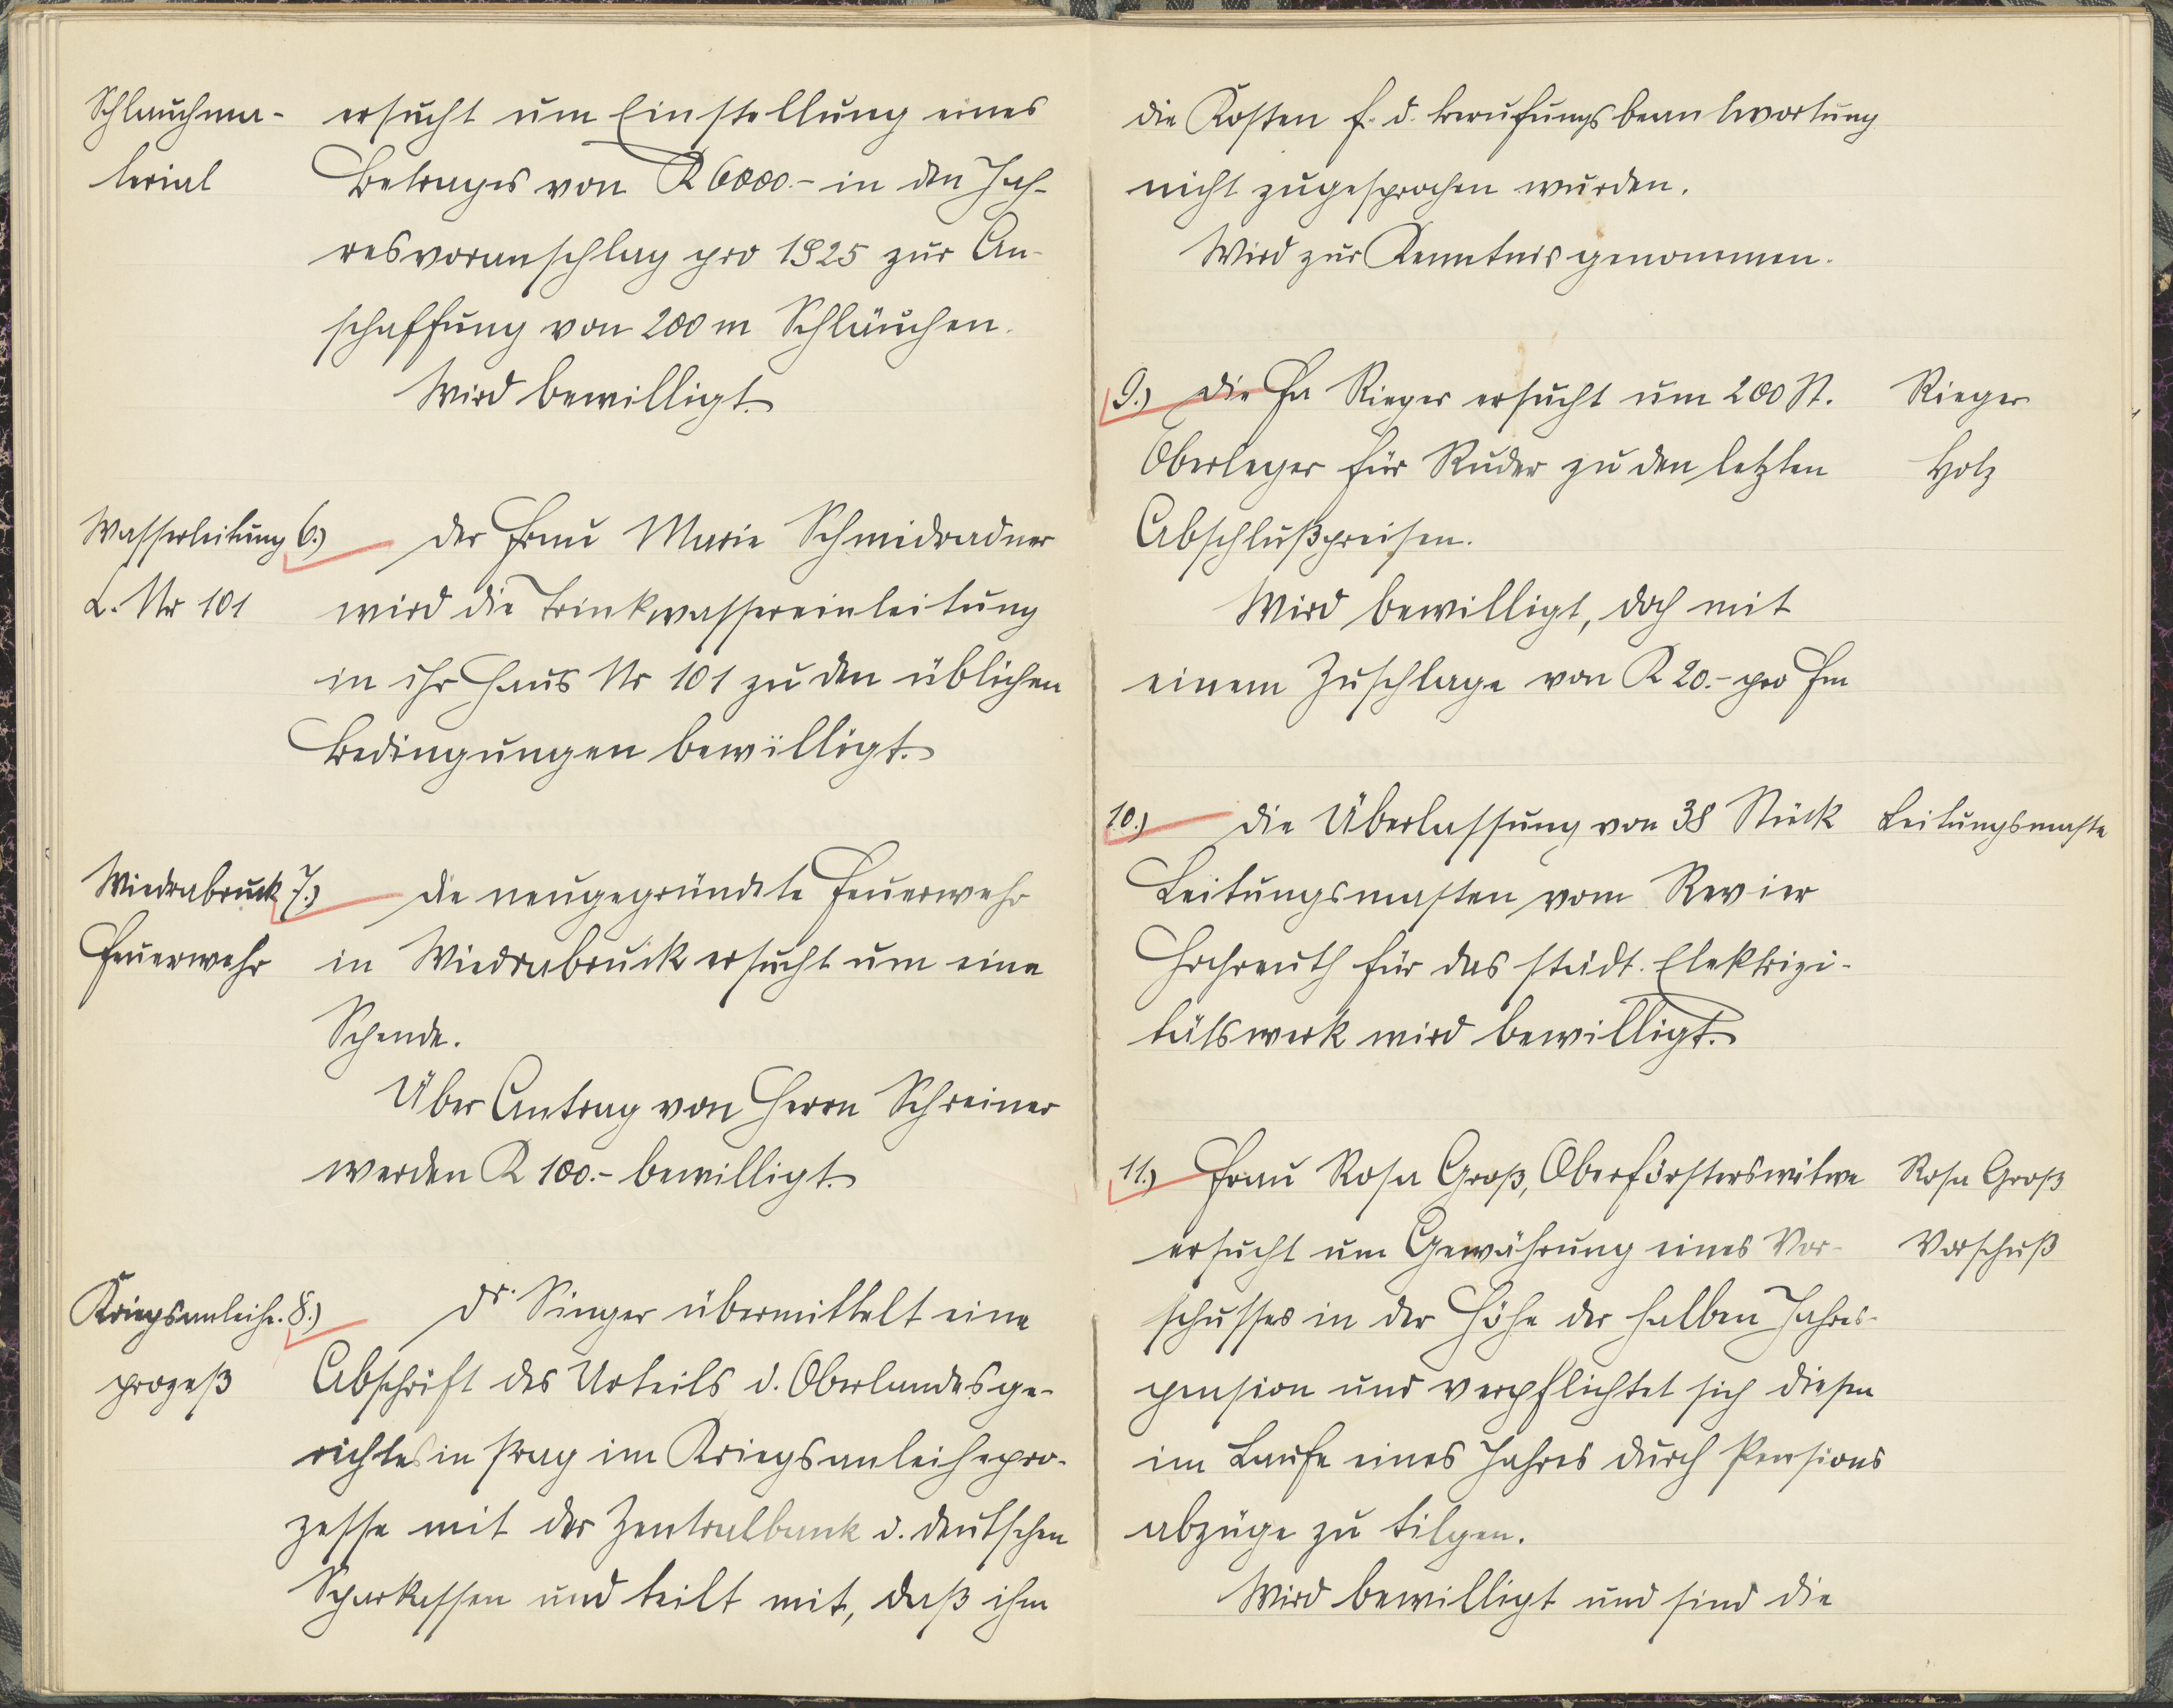 Schlauchma-
terial
ersucht um Einstellung eines
Betrages von K 6000.- in den Jah-
resvoranschlag pro 1925 zur An-
schaffung von 200 m Schläuchen.
Wird bewilligt.
Wasserleitung
C. Nr 101
6.) Der Frau Marie Schmidradner
wird die Trinkwassereinleitung
in ihr Haus Nr 101 zu den üblichen
Bedingungen bewilligt.
Wiedrabruck
Feuerwehr
7.) Die neugegründete Feuerwehr
in Wiedrabruck ersucht um eine
Spende.
Über Antrag von Herrn Schreiner
werden K 100.- bewilligt.
Kriegsanleihe-
prozeß
8.) Dr. Singer übermittelt eine
Abschrift des Urteils d. Oberlandesge-
richtes in Prag im Kriegsanleihepro-
zesse mit der Zentralbank d. deutschen
Sparkassen und teilt mit, daß ihm
die Kosten f. d. Berufungsbeantwortung
nicht zugesprochen wurden.
Wird zur Kenntnis genommen.
9.) Die Fa Rieger ersucht um 200 St.
Oberleger für Ruder zu den letzten
Abschlußpreisen.
Wird bewilligt, doch mit
einem Zuschlage von K 20.- pro fm
Rieger
Holz
10.) Die Überlassung von 38 Stück
Leitungsmasten vom Revier
Hochreuth für das städt. Elektrizi-
tätswerk wird bewilligt.
Leitungsmaste
11.) Frau Rosa Groß, Oberförsterswitwe
ersucht um Gewährung eines Vor-
schusses in der Höhe der halben Jahres-
pension und verpflichtet sich diesen
im Laufe eines Jahres durch Pensions
abzüge zu tilgen.
Wird bewilligt und sind die
Rosa Groß
Vorschuß